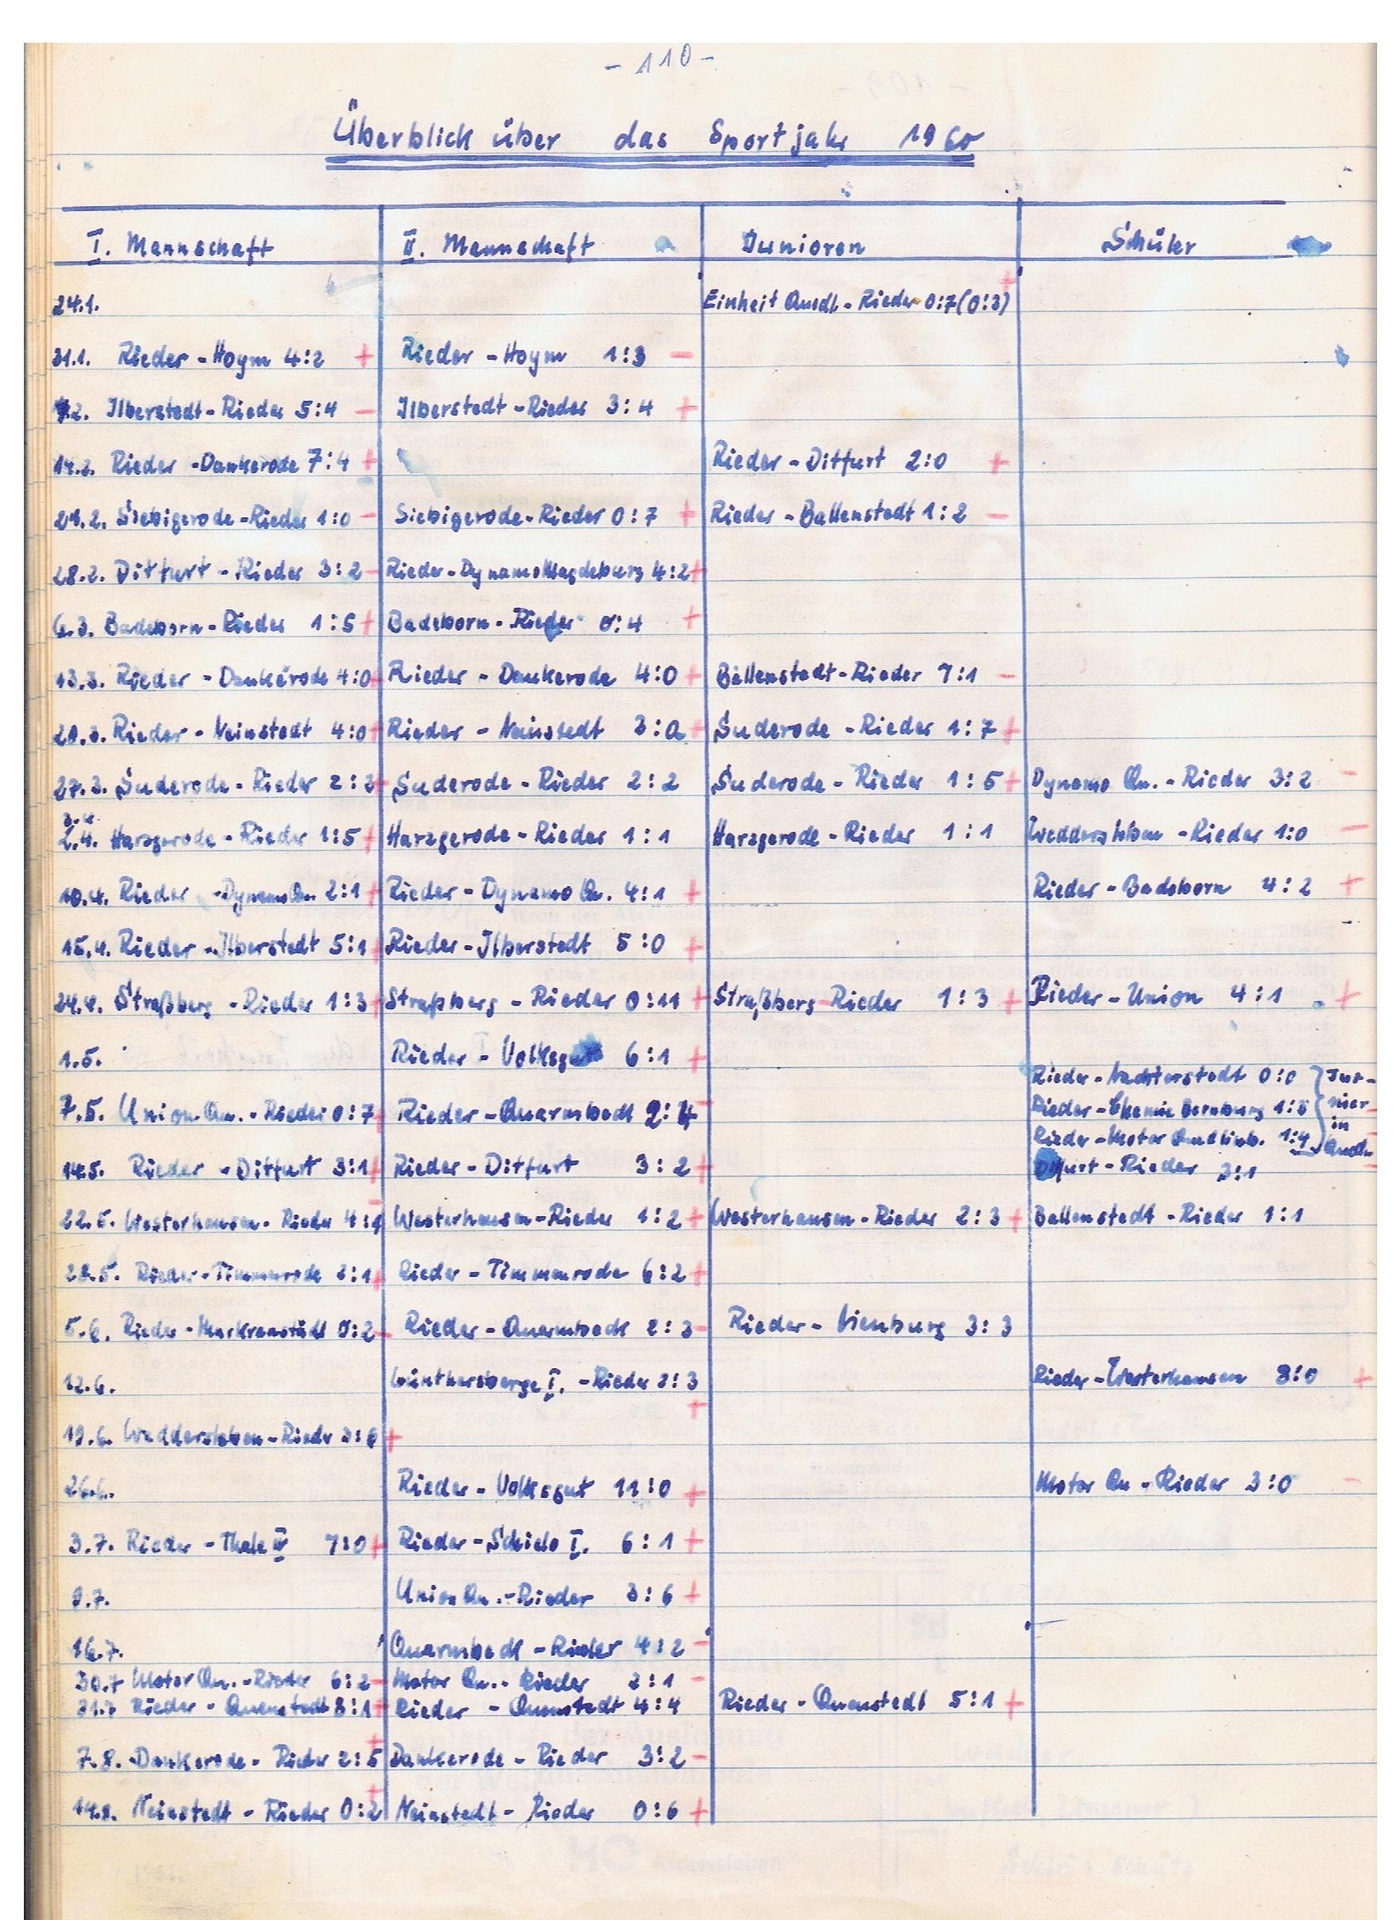 - 110 -
Überblick über das Sportjahr 1960
I. Mannschaft II. Mannschaft Junioren Schüler
24.1. Einheit Quedl - Rieder 0:7 (0:3) +
31.1. Rieder - Hoym 4:2 + Rieder - Hoym 1:3 -
7.2. Ilberstedt - Rieder 5:4 - Ilberstedt - Rieder 3:4 +
14.2. Rieder - Dankerode 7:4 + Rieder - Ditfurt 2:0 +
21.2. Siebigerode - Rieder 1:0 - Siebigerode - Rieder 0:7 + Rieder - Ballenstedt 1:2 -
28.2. Ditfurt - Rieder 3:2 - Rieder - Dynamo Magdeburg 4:2 +
6.3. Badeborn - Rieder 1:5 + Badeborn - Rieder 0:4 +
13.3. Rieder - Dankerode 4:0 + Rieder - Dankerode 4:0 + Ballenstedt - Rieder 7:1 -
20.3. Rieder - Neinstedt 4:0 + Rieder - Neinstedt 3:0 + Suderode - Rieder 1:7 +
27.3. Suderode - Rieder 2:3 + Suderode - Rieder 2:2 Suderode - Rieder 1:5 + Dynamo Qu. - Rieder 3:2 -
3.4. Harzgerode - Rieder 1:5 + Harzgerode - Rieder 1:1 Harzgerode - Rieder 1:1 Weddersleben - Rieder 1:0 -
10.4. Rieder - Dynamo Qu. 2:1 + Rieder - Dynamo Qu. 4:1 + Rieder - Badeborn 4:2 +
15.4. Rieder - Ilberstedt 5:1 + Rieder - Ilberstedt 5:0 +
24.4. Straßberg - Rieder 1:3 + Straßberg - Rieder 0:11 + Straßberg Rieder 1:3 + Rieder - Union 4:1 +
1.5. Rieder - Volksgut 6:1 +
Rieder - Nachterstedt 0:0 } Tur-
7.5. Union Qu. - Rieder 0:7 + Rieder - Quarmbeck 2:4 - Rieder - Chemie Bernburg nier -
Rieder - Motor Quedlinb. 1:4 in Quedl. -
14.5. Rieder - Ditfurt 3:1 + Rieder - Ditfurt 3:2 + Ditfurt - Rieder 3:1 -
22.5. Westerhausen - Rieder 4:1 - Westerhausen - Rieder 1:2 + Westerhausen - Rieder 2:3 + Ballenstedt - Rieder 1:1
28.5. Rieder - Timmenrode 2:1 + Rieder - Timmenrode 6:2 +
5.6. Rieder - Markranstädt 0:2 - Rieder - Quarmbeck 2:3 - Rieder - Nienburg 3:3
12.6. Günthersberge I. - Rieder 2:3 + Rieder - Westerhausen 3:0 +
19.6. Weddersleben - Rieder +
26.6. Rieder - Volksgut 11:0 + Motor Qu - Rieder 3:0 -
3.7. Rieder - Thale III 7:0 + Rieder - Schielo I. 6:1 +
9.7. Union Qu. - Rieder 3:6 +
16.7. Quarmbeck - Rieder 4:2 -
30.7 Motor Qu. - Rieder 6:2 - Motor Qu. - Rieder 2:1 -
31.7 Rieder - Quenstedt 3:1 + Rieder - Quenstedt 4:4 Rieder - Quenstedt 5:1 +
7.8. Dankerode - Rieder 2:5 + Dankerode - Rieder 3:2 -
14.8. Neinstedt - Rieder 0:2 + Neinstedt - Rieder 0:6 +